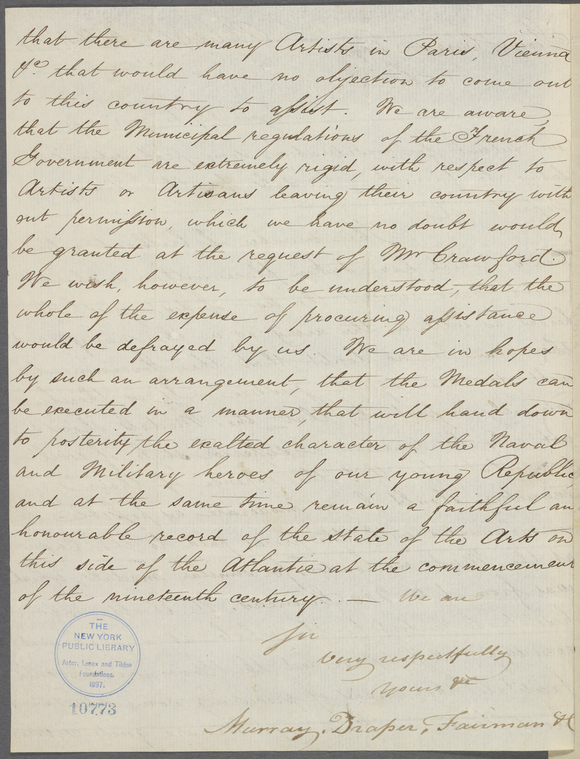 that there are many Artists in Paris, Vienna
&c. that would have no objection to come out
to this country to assist. We are aware,
that the Municipal regulations of the French
Government are extremely rigid, with respect to
Artists or Artisans leaving their country with
out permission, which we have no doubt would
be granted at the request of Mr Crawford.
We wish, however, to be understood, that the
whole of the expense of procuring assistance
would be defrayed by us We are in hopes
by such an arrangement, that the Medals can
be executed in a manner, that will hand down
to posterity the exalted character of the Naval
and Military heroes of our young Republic
and at the same time remain a faithful an
honourable record of the state of the Arts on
this side of the Atlantic at the commencement
of the nineteenth century. — We are
Sir
very respectfully
Yours &c
Murray, Draper, Fairman & C
THE
NEW YORK
PUBLIC LIBRARY
Astor, Lenox and Tilden
Foundations.
1897.
10773